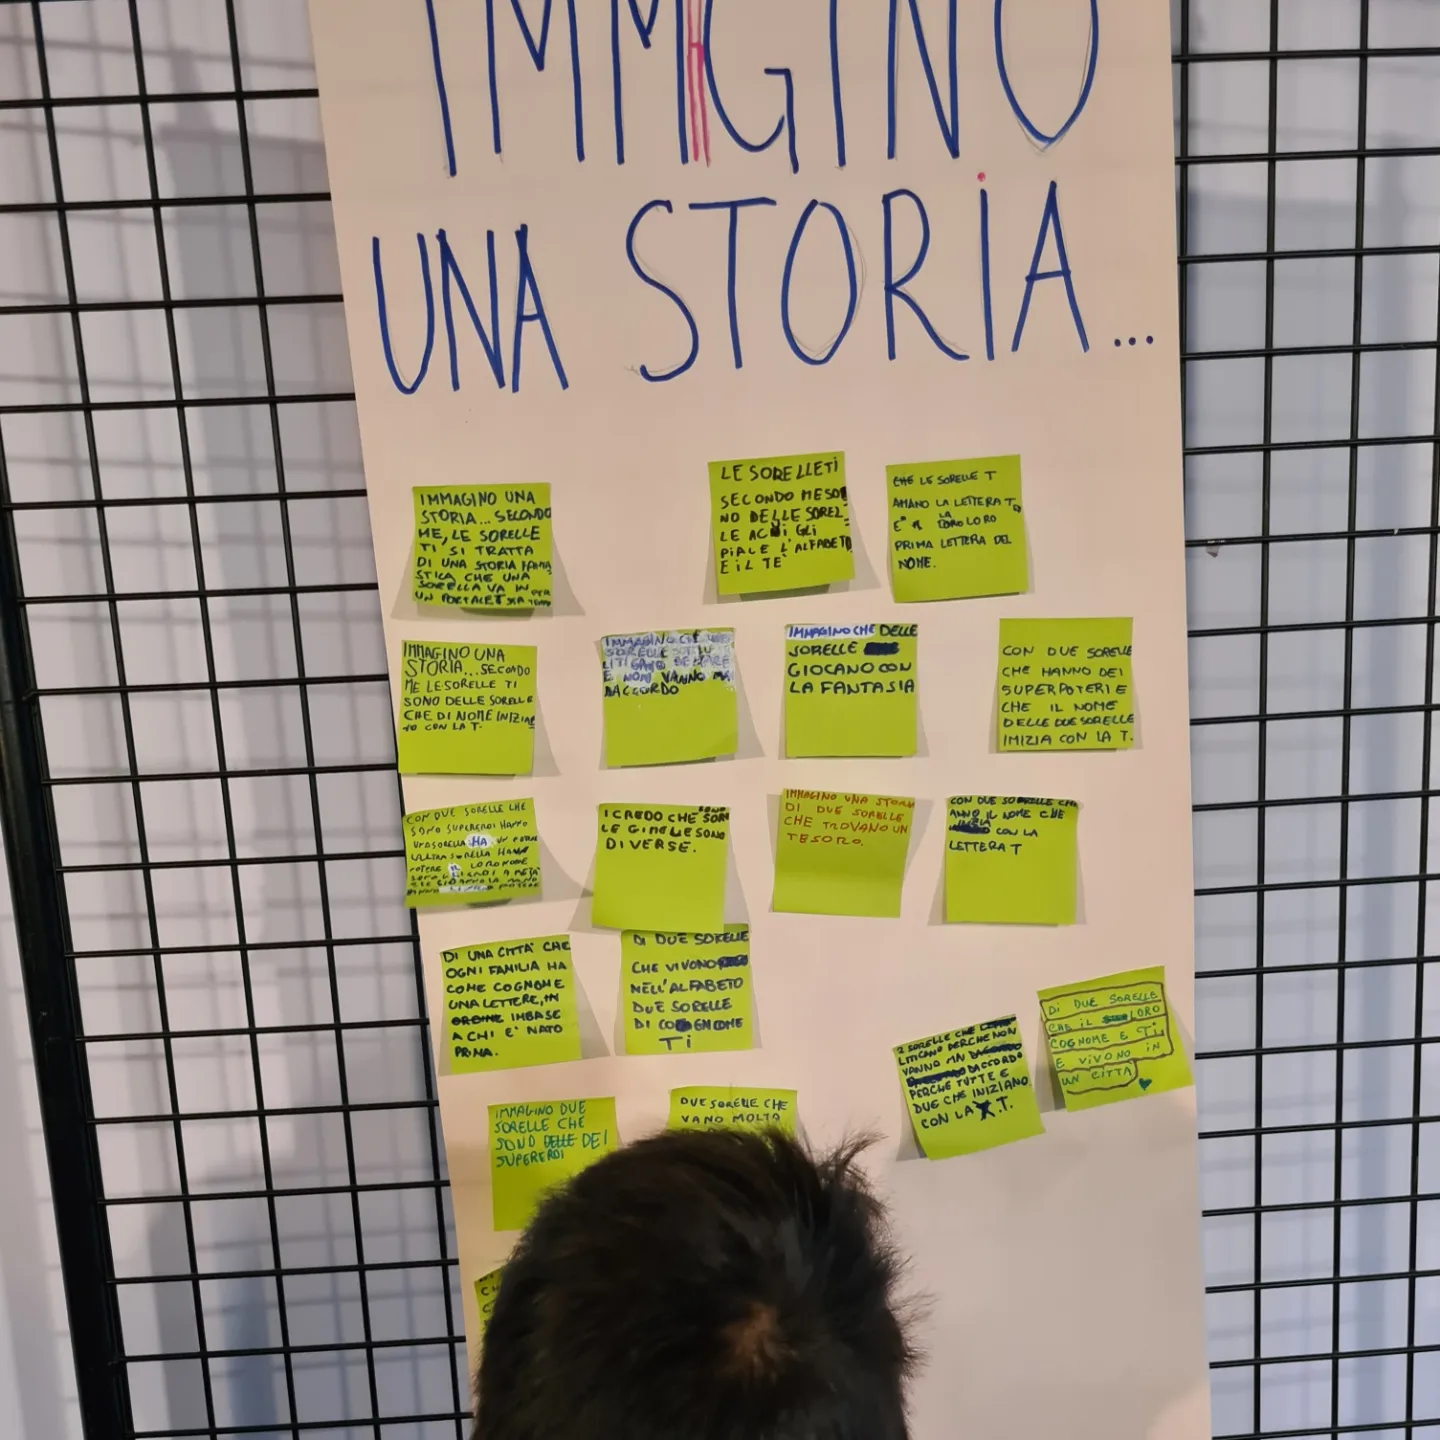 IMMAGINO
UNA STORIA...
IMMAGINO UNA
STORIA... SECONDO
ME, LE SORELLE
TI SI TRATTA
DI UNA STORIA FANTA
STICA CHE UNA
SORELLA VA IN
UN PORTALE
LE SORELLE TI
SECONDO ME SO
NO DELLE SOREL
LE A CUI GLI
PIACE L'ALFABETO
E IL TE
CHE LE SORELLE T
AMANO LA LETTERA T
E' LA LORO
PRIMA LETTERA DEL
NOME.
IMMAGINO UNA
STORIA... SECONDO
ME LE SORELLE TI
SONO DELLE SORELLE
CHE DI NOME INIZIA
NO CON LA T.
IMMAGINO CHE
SORELLE
LITIGANO SEMPRE
E NON VANNO MAI
DACCORDO
IMMAGINO CHE DELLE
SORELLE
GIOCANO CON
LA FANTASIA
CON DUE SORELLE
CHE HANNO DEI
SUPERPOTERI E
CHE IL NOME
DELLE DUE SORELLE
INIZIA CON LA T.
CON DUE SORELLE CHE
SONO SUPEREROI HANNO
UNA SORELLA HA UN POTERE
SORELLA
POTERE IL LORO NOME
I CREDO CHE SONO SOR
LE GIMELE SONO
DIVERSE.
IMMAGINO UNA STORIA
DI DUE SORELLE
CHE TROVANO UN
TESORO.
CON DUE SORELLE CHE
ANNO IL NOME CHE
INIZIA CON LA
LETTERA T
DI UNA CITTA' CHE
OGNI FAMILIA HA
COME COGNOME
UNA LETTERE, IN
ORDINE IMBASE
A CHI E' NATO
PRIMA.
DI DUE SORELLE
CHE VIVONO
NELL'ALFABETO
DUE SORELLE
DI COGNOME
TI
2 SORELLE CHE
LITICANO PERCHE NON
VANNO MAI
DACCORDO
PERCHE TUTTE E
DUE CHE INIZIANO
CON LA T.
DI DUE SORELLE
CHE IL LORO
COGNOME E TI
E VIVONO IN
UN CITTÀ
IMMAGINO DUE
SORELLE CHE
SONO DELLE DEI
SUPEREROI
DUE SORELLE CHE
VANO MOLTO